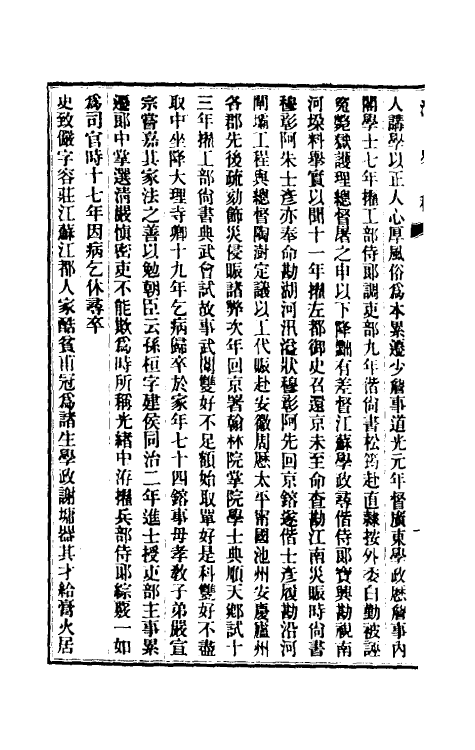 人講學以正人心厚風俗爲本累遷少詹事道光元年督廣東學政歷詹事內
閣學士七年擢工部侍郎調吏部九年偕尙書松筠赴直隸按外委白勤被誣
冤斃獄護理總督屠之申以下降黜有差督江蘇學政尋偕侍郎寶興勘視南
河垛料舉實以聞十一年擢左都御史召還京未至命查勘江南災賑時尙書
穆彰阿朱士彥亦奉命勘湖河汛溢狀穆彰阿先回京鎔遂偕士彥履勘沿河
閘壩工程與總督陶澍定議以工代賑赴安徽周歷太平甯國池州安慶廬州
各郡先後疏劾飾災侵賑諸弊次年回京署翰林院掌院學士典順天鄉試十
三年擢工部尙書典武會試故事武闈雙好不足額始取單好是科雙好不盡
取中坐降大理寺卿十九年乞病歸卒於家年七十四鎔事母孝敎子弟嚴宣
宗嘗嘉其家法之善以勉朝臣云孫桓字建侯同治二年進士授吏部主事累
遷郎中掌選淸嚴愼密吏不能欺爲時所稱光緒中洊擢兵部侍郎綜覈一如
爲司官時十七年因病乞休尋卒
史致儼字容莊江蘇江都人家酷貧甫冠爲諸生學政謝墉器其才給膏火居